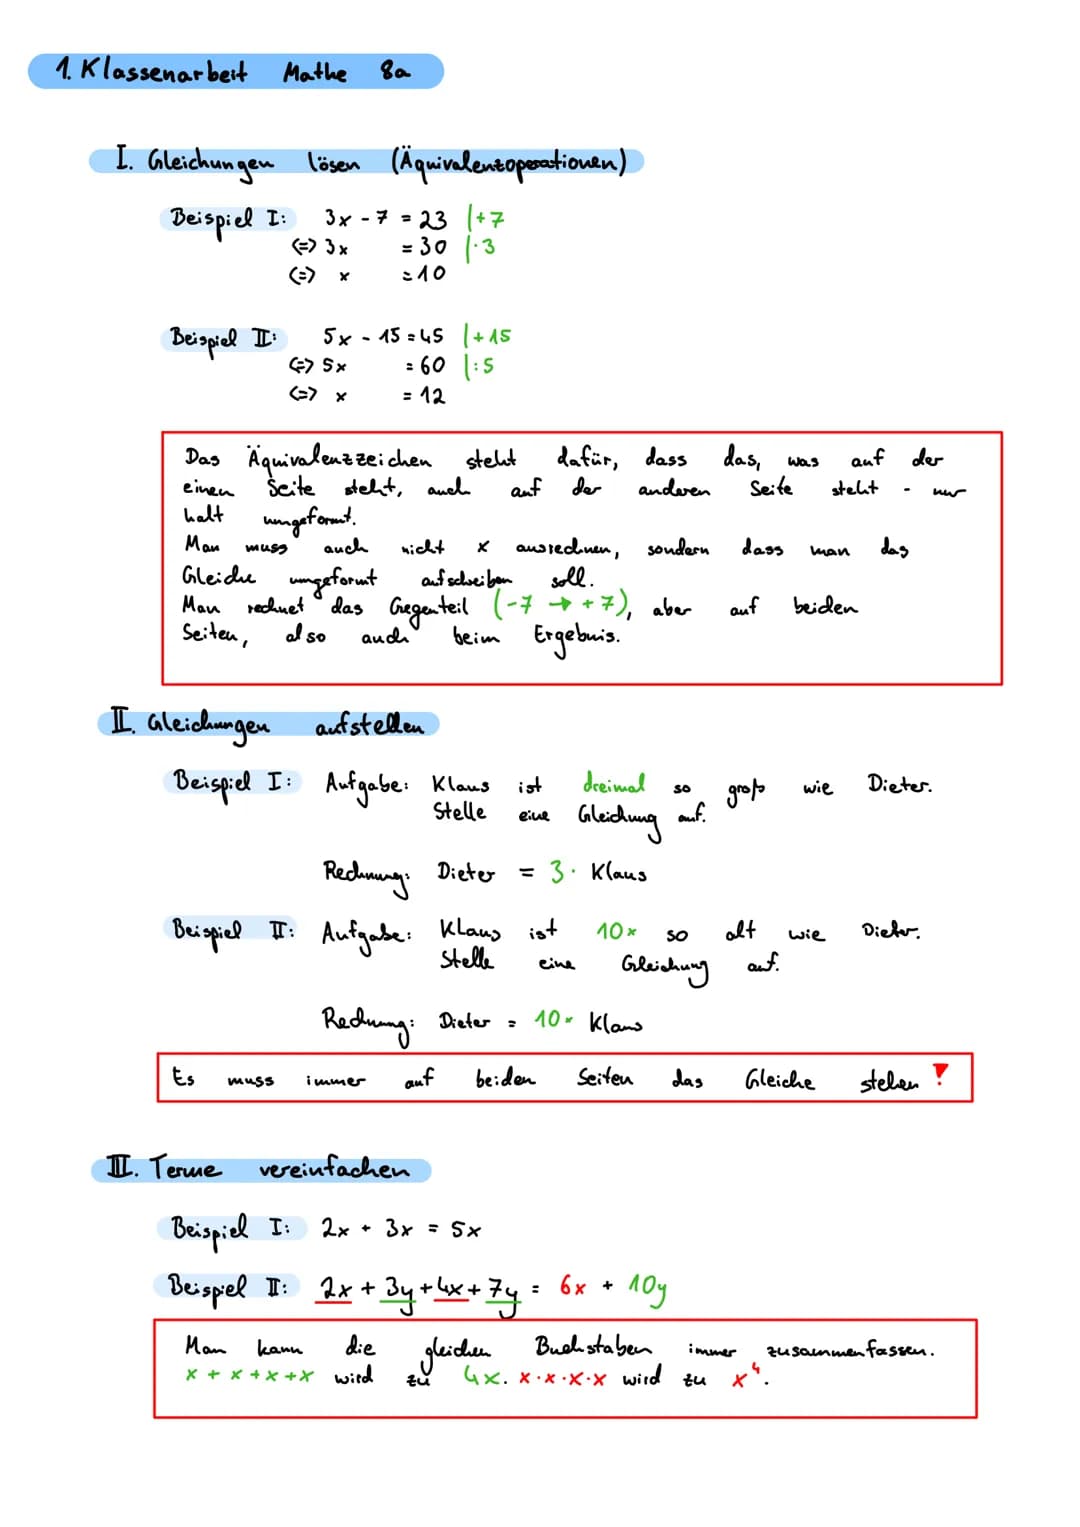 1. Klassenarbeit Mathe 8a
I. Gleichungen lösen (Äquivalenzoperationen)
Beispiel I: 3x - 7 = 23 |+7
<=> 3x = 30 |·3
<=> x = 10
Beispiel II: 5x - 15 = 45 |+15
<=> 5x = 60 |:5
<=> x = 12
Das Äquivalenzzeichen steht dafür, dass das, was auf der
einen Seite steht, auch auf der anderen Seite steht - nur
halt umgeformt.
Man muss auch nicht x ausrechnen, sondern dass man das
Gleiche umgeformt aufschreiben soll.
Man rechnet das Gegenteil (-7 → +7), aber auf beiden
Seiten, also auch beim Ergebnis.
II. Gleichungen aufstellen
Beispiel I: Aufgabe: Klaus ist dreimal so groß wie Dieter.
Stelle eine Gleichung auf.
Rechnung: Dieter = 3· Klaus
Beispiel II: Aufgabe: Klaus ist 10x so alt wie Dieter.
Stelle eine Gleichung auf.
Rechnung: Dieter = 10· Klaus
Es muss immer auf beiden Seiten das Gleiche stehen!
III. Terme vereinfachen
Beispiel I: 2x + 3x = 5x
Beispiel II: 2x + 3y + 4x + 7y = 6x + 10y
Man kann die gleichen Buchstaben immer zusammenfassen.
x + x + x + x wird zu 4x. x·x·x·x wird zu x⁴.